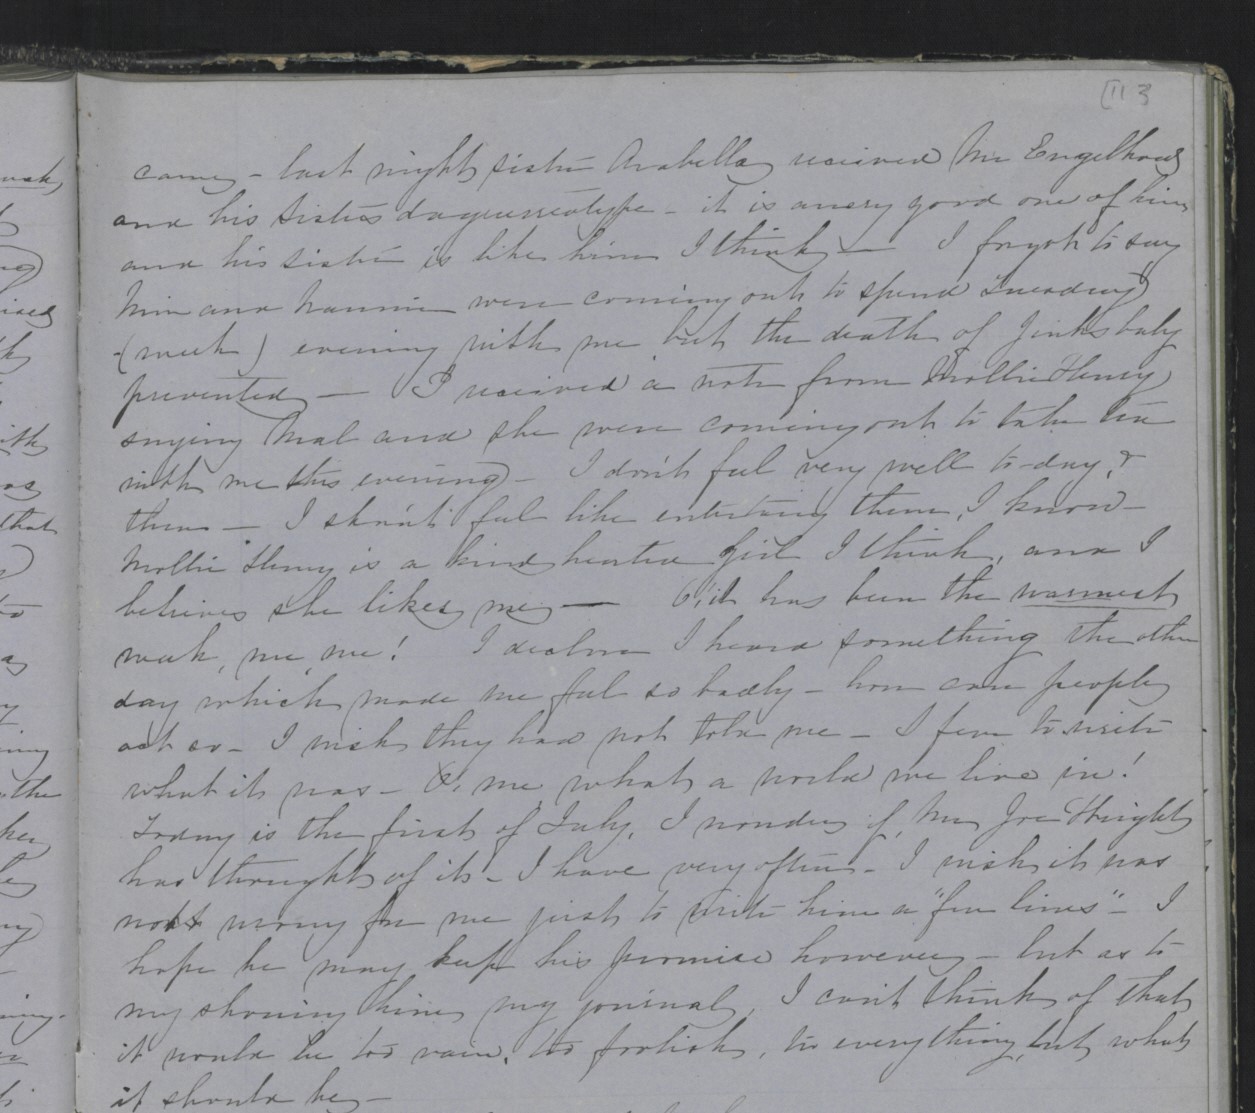 [113
came - last night sister Arabella received Mr Engelhard
and his sisters daguerreotype - it is a very good one of him
and his sister is like him I think — I forgot to say
Mim and Nannie were coming out to spend Tuesday
(week) evening with me but the death of Jinks baby
prevented — I received a note from Mollie Henry
saying Mal and she were coming out to take tea
with me this evening - I don't feel very well to-day, &
then — I shan't feel like entertaining them, I know -
Mollie Henry is a kind hearted girl I think, and I
believe she likes me — O, it has been the warmest
week, me me! I declare I heard something the other
day which made me feel so badly - how can people
act so - I wish they had not told me - I fear to write
what it was - O, me what a world we live in!
Today is the first of July, I wonder if Mr Joe Wright
has thought of it - I have very often - I wish it was
not wrong for me just to write him a "few lines" - I
hope he may keep his promise however - but as to
my showing him my journal, I can't think of that
it would be too vain, too foolish, too everything, but what
it should be -